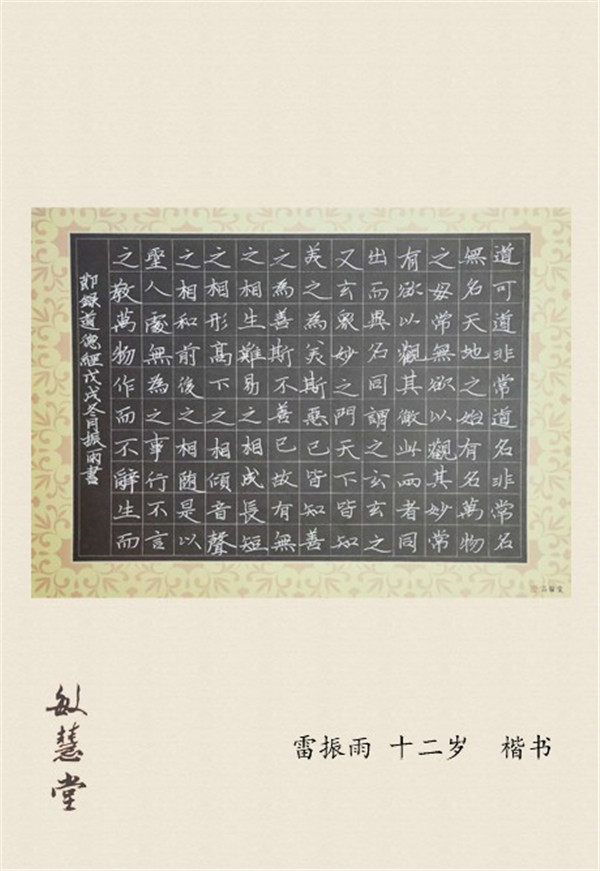 道可道非常道名非常名
無名天地之始有名萬物
之母常無欲以觀其妙常
有欲以觀其徼此兩者同
出而異名同謂之玄玄之
又玄衆妙之門天下皆知
美之為美斯惡已皆知善
之為善斯不善已故有無
之相生難易之相成長短
之相形高下之相傾音聲
之相和前後之相隨是以
聖人處無為之事行不言
之教萬物作而不辭生而
節錄道德經戊戌冬月振雨書
敏慧堂
雷振雨 十二岁 楷书